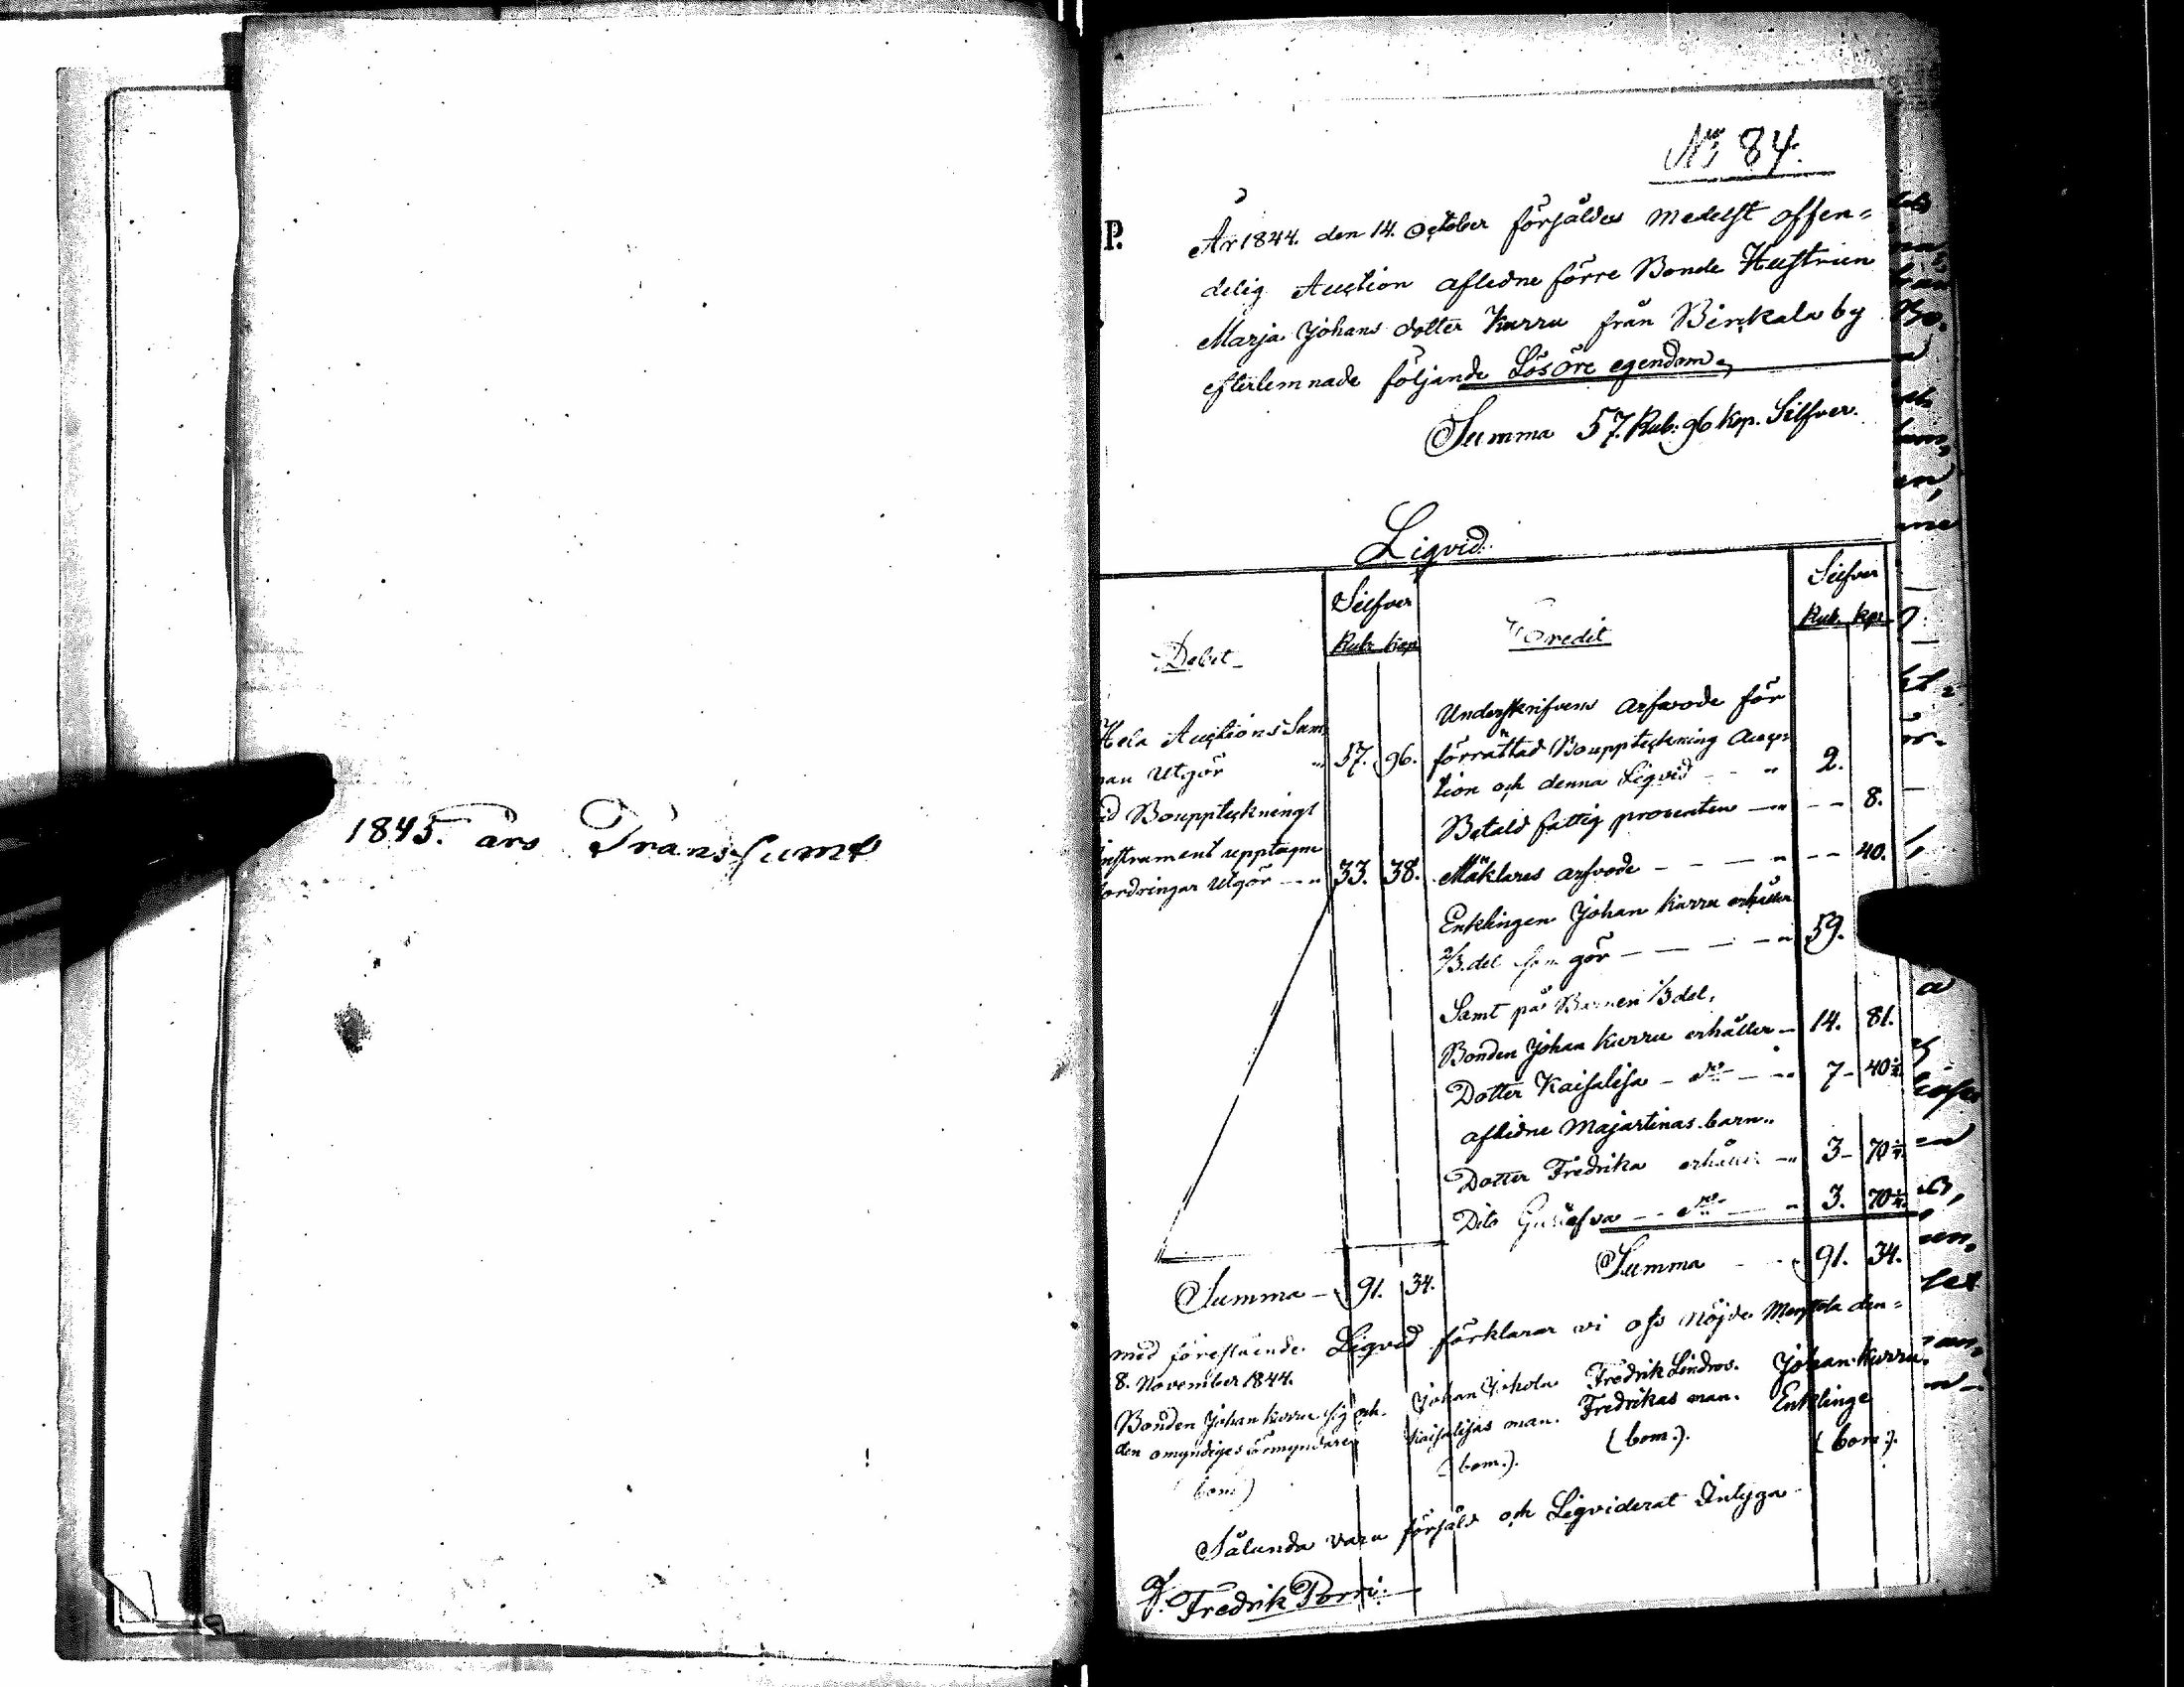 1845. års Transsumt
No 84.
P.
År 1844. den 14. October försåldes medelst offen=
delig Auction aflidne förre Bonde Hustrun
Marja Johans dotter Kurru från Birkala by
efterlemnade följande Lösöre egendom,
Summa 57. Rub: 96 kop. Silfver.
Liqvid
Debet
Silfver
Rub. kop
Credit
Silfver
Rub. kop.
Hela Auctions Sum
man Utgör " 57. 96.
id Boupptecknings
Instrument upptagne
fordringar Utgör - - " 33. 38.
Underskrifvens arfvode för
förrättad Bouppteckning Auc-
tion och denna Liqvid - - " 2.
Betald fattig procenten - - - 8.
Mäklares arfvode - - - " - - 40.
Enklingen Johan Kurru erhåller
2/3. del som gör - - - - " 59.
Samt på Barnen 1/3 del,
Bonden Johan Kurru erhåller - 14. 81.
Dotter Kaisalisa - do - - " 7 - 40 1/2
aflidne Majastinas barn..
Dotter Fredrika erhåller - " 3 - 70 1/4
Dito Gustafva - - do - - " 3. 70 1/4.
Summa - 91. 34.
Summa - - 91. 34.
med förestående Liqvid förklarar vi oss nöjde den=
8. November 1844.
Bonden Johan Kurru sig och
den omyndiges förmyndare
(bom.)
Johan
Kaisalisas man.
(bom.).
Fredrik Lindros.
Fredrikas man.
(bom.).
Johan Kurru.
Enklinge
(bom.).
Sålunda vara försåld och Liqviderat Intyga
Fredrik Porri.